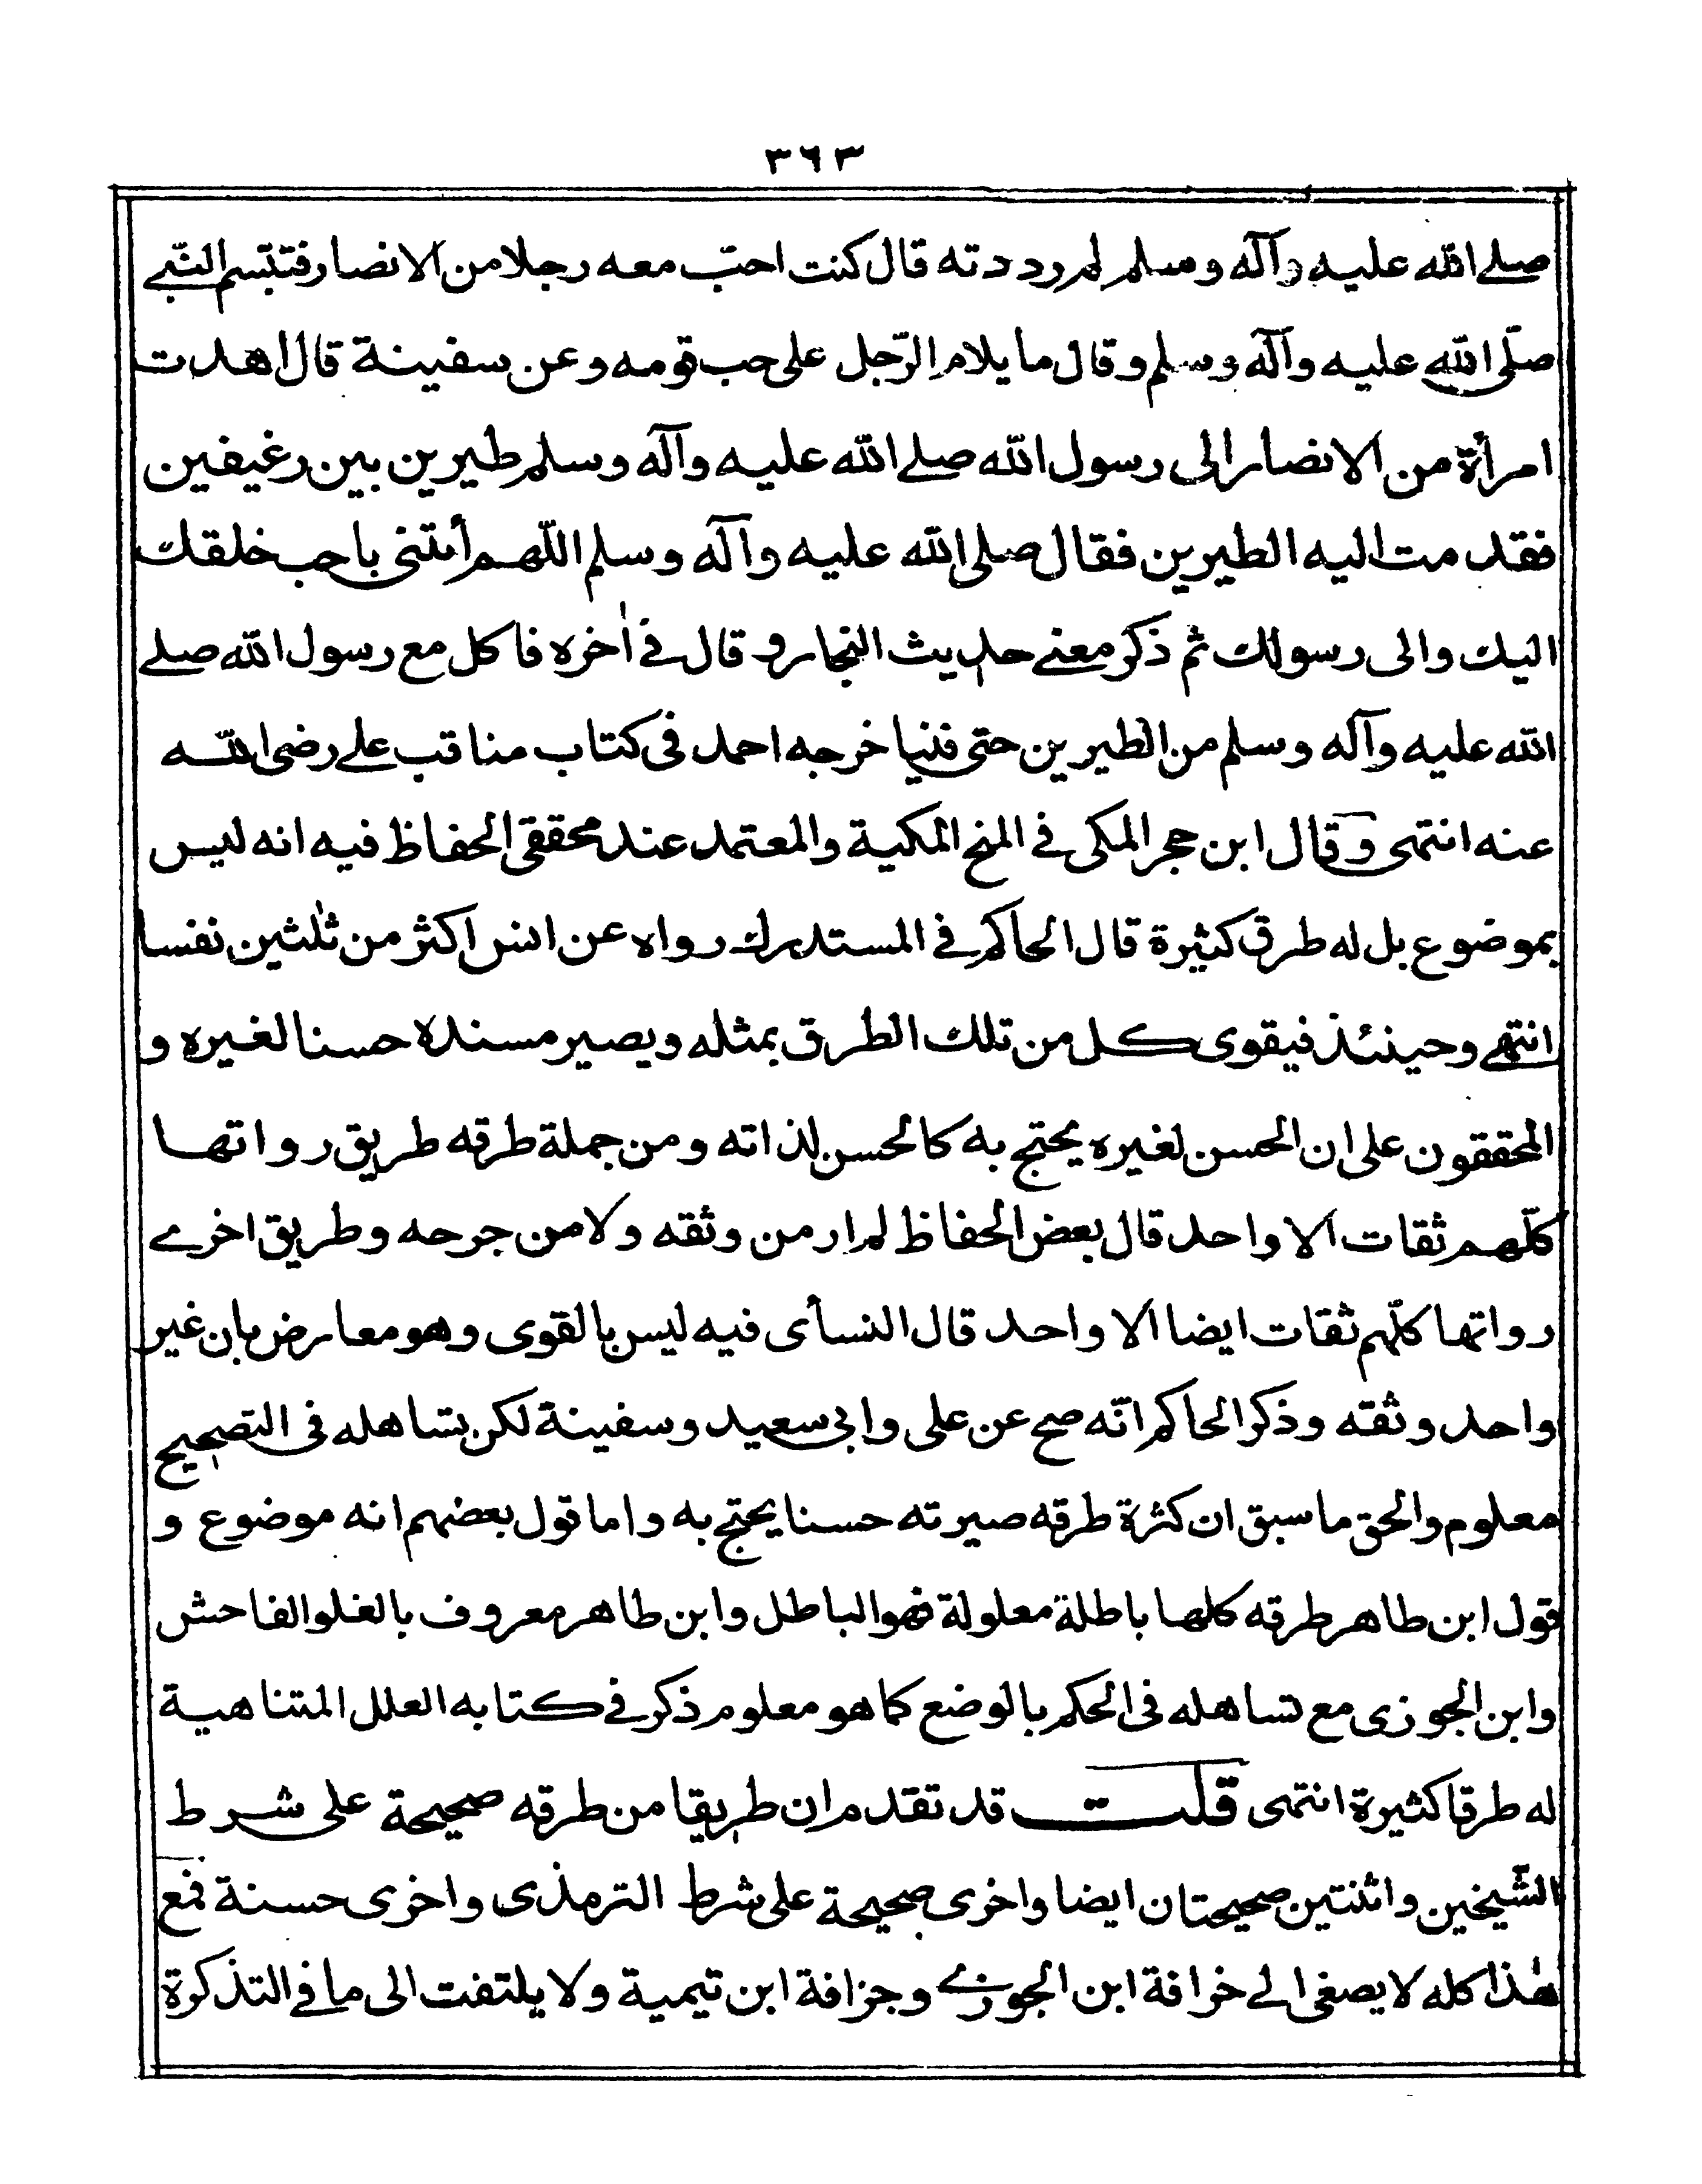 ٣٦٣
صلے الله عليه وآله وسلم لم رددته قال كنت احبّ معه رجلا من الانصار فتبّسم النّبے
صلّى الله عليه وآله وسلم وقال ما يلام الرّجل على حب قومه وعن سفينة قال اهدت
امرأة من الانصار الى رسول الله صلے الله عليه وآله وسلم طيرين بين رغيفين
فقدمت اليه الطيرين فقال صلى الله عليه وآله وسلم اللّهم أئتنى باحب خلقك
اليك والى رسولك ثم ذكر معنے حديث النجار وقال فے اٰخره فاكل مع رسول الله صلے
الله عليه وآله وسلم من الطيرين حتى فنيا خرجه احمد فى كتاب مناقب علے رضى الله
عنه انتهى وقال ابن حجر المكى فے المنح المكية والمعتمد عند محققى الحفاظ فيه انه ليس
بموضوع بل له طرق كثيرة قال الحاكم فے المستدرك رواه عن انس اكثر من ثلٰثين نفسا
انتهے وحينئذ فيقوى كل من تلك الطرق بمثله ويصير مسنده حسنا لغيره و
المحققون على ان الحسن لغيره يحتج به كالحسن لذاته ومن جملة طرقه طريق رواتها
كلّهم ثقات الا واحد قال بعض الحفاظ لم ار من وثقه ولا من جرحه وطريق اخرے
رواتها كلّهم ثقات ايضا الا واحد قال النسأى فيه ليس بالقوى وهو معارض بان غير
واحد وثقه وذكر الحاكم انّه صح عن على وابى سعيد وسفينة لكن تساهله فى التصحيح
معلوم والحق ما سبق ان كثرة طرقه صيرته حسنا يحتج به واما قول بعضهم انه موضوع و
قول ابن طاهر طرقه كلها باطلة معلولة فهو الباطل وابن طاهر معروف بالغلو الفاحش
وابن الجوزى مع تساهله فى الحكم بالوضع كما هو معلوم ذكر فے كتابه العلل المتناهية
له طرقا كثيرة انتهى قلت قد تقدم ان طريقا من طرقه صحيحة على شرط
الشّيخين واثنتين صحيحتان ايضا واخرى صحيحة على شرط الترمذى واخرى حسنة فمع
هٰذا كله لا يصغى الے خرافة ابن الجوزے وجزافة ابن تيمية ولا يلتفت الى ما فے التذكرة